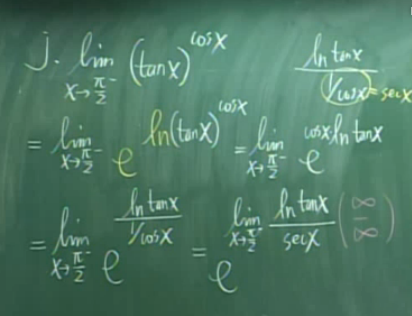 j. lim x→π/2⁻ (tanx)^cosx    ln tanx / (1/cosx) = secx
= lim x→π/2⁻ e^ln(tanx)^cosx = lim x→π/2⁻ e^cosx·ln tanx
= lim x→π/2⁻ e^(ln tanx / (1/cosx)) = e^(lim x→π/2⁻ ln tanx / secx) (∞/∞)